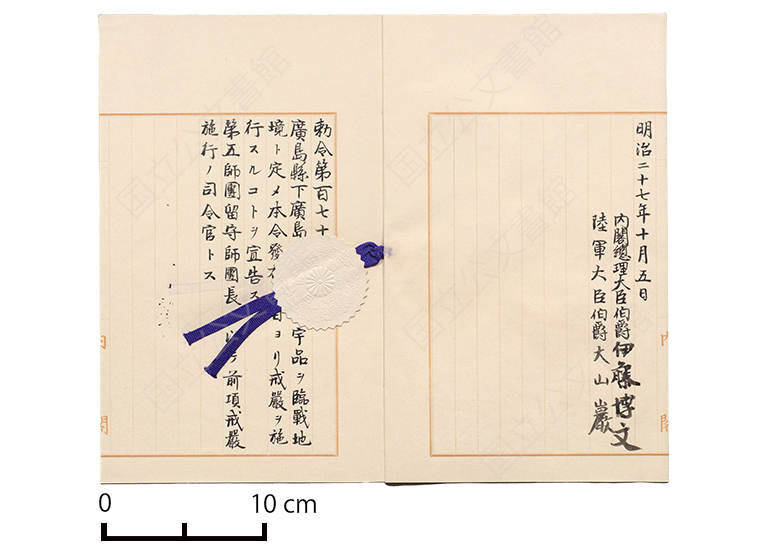 明治二十七年十月五日
内閣總理大臣伯爵伊藤博文
陸軍大臣伯爵大山巖
勅令第百七十
廣島縣下廣島 宇品ヲ臨戰地
境ト定メ本令發 日ヨリ戒嚴ヲ施
行スルコトヲ宣告ス
第五師團留守師團長 以テ前項戒嚴
施行ノ司令官トス
内閣
国立公文書館
0 10 cm